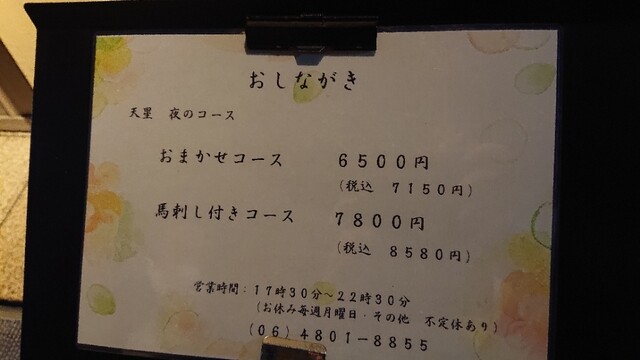 おしながき
天星 夜のコース
おまかせコース 6500円
(税込 7150円)
馬刺し付きコース 7800円
(税込 8580円)
営業時間:17時30分~22時30分
(お休み毎週月曜日・その他 不定休あり)
(06)4801-8855